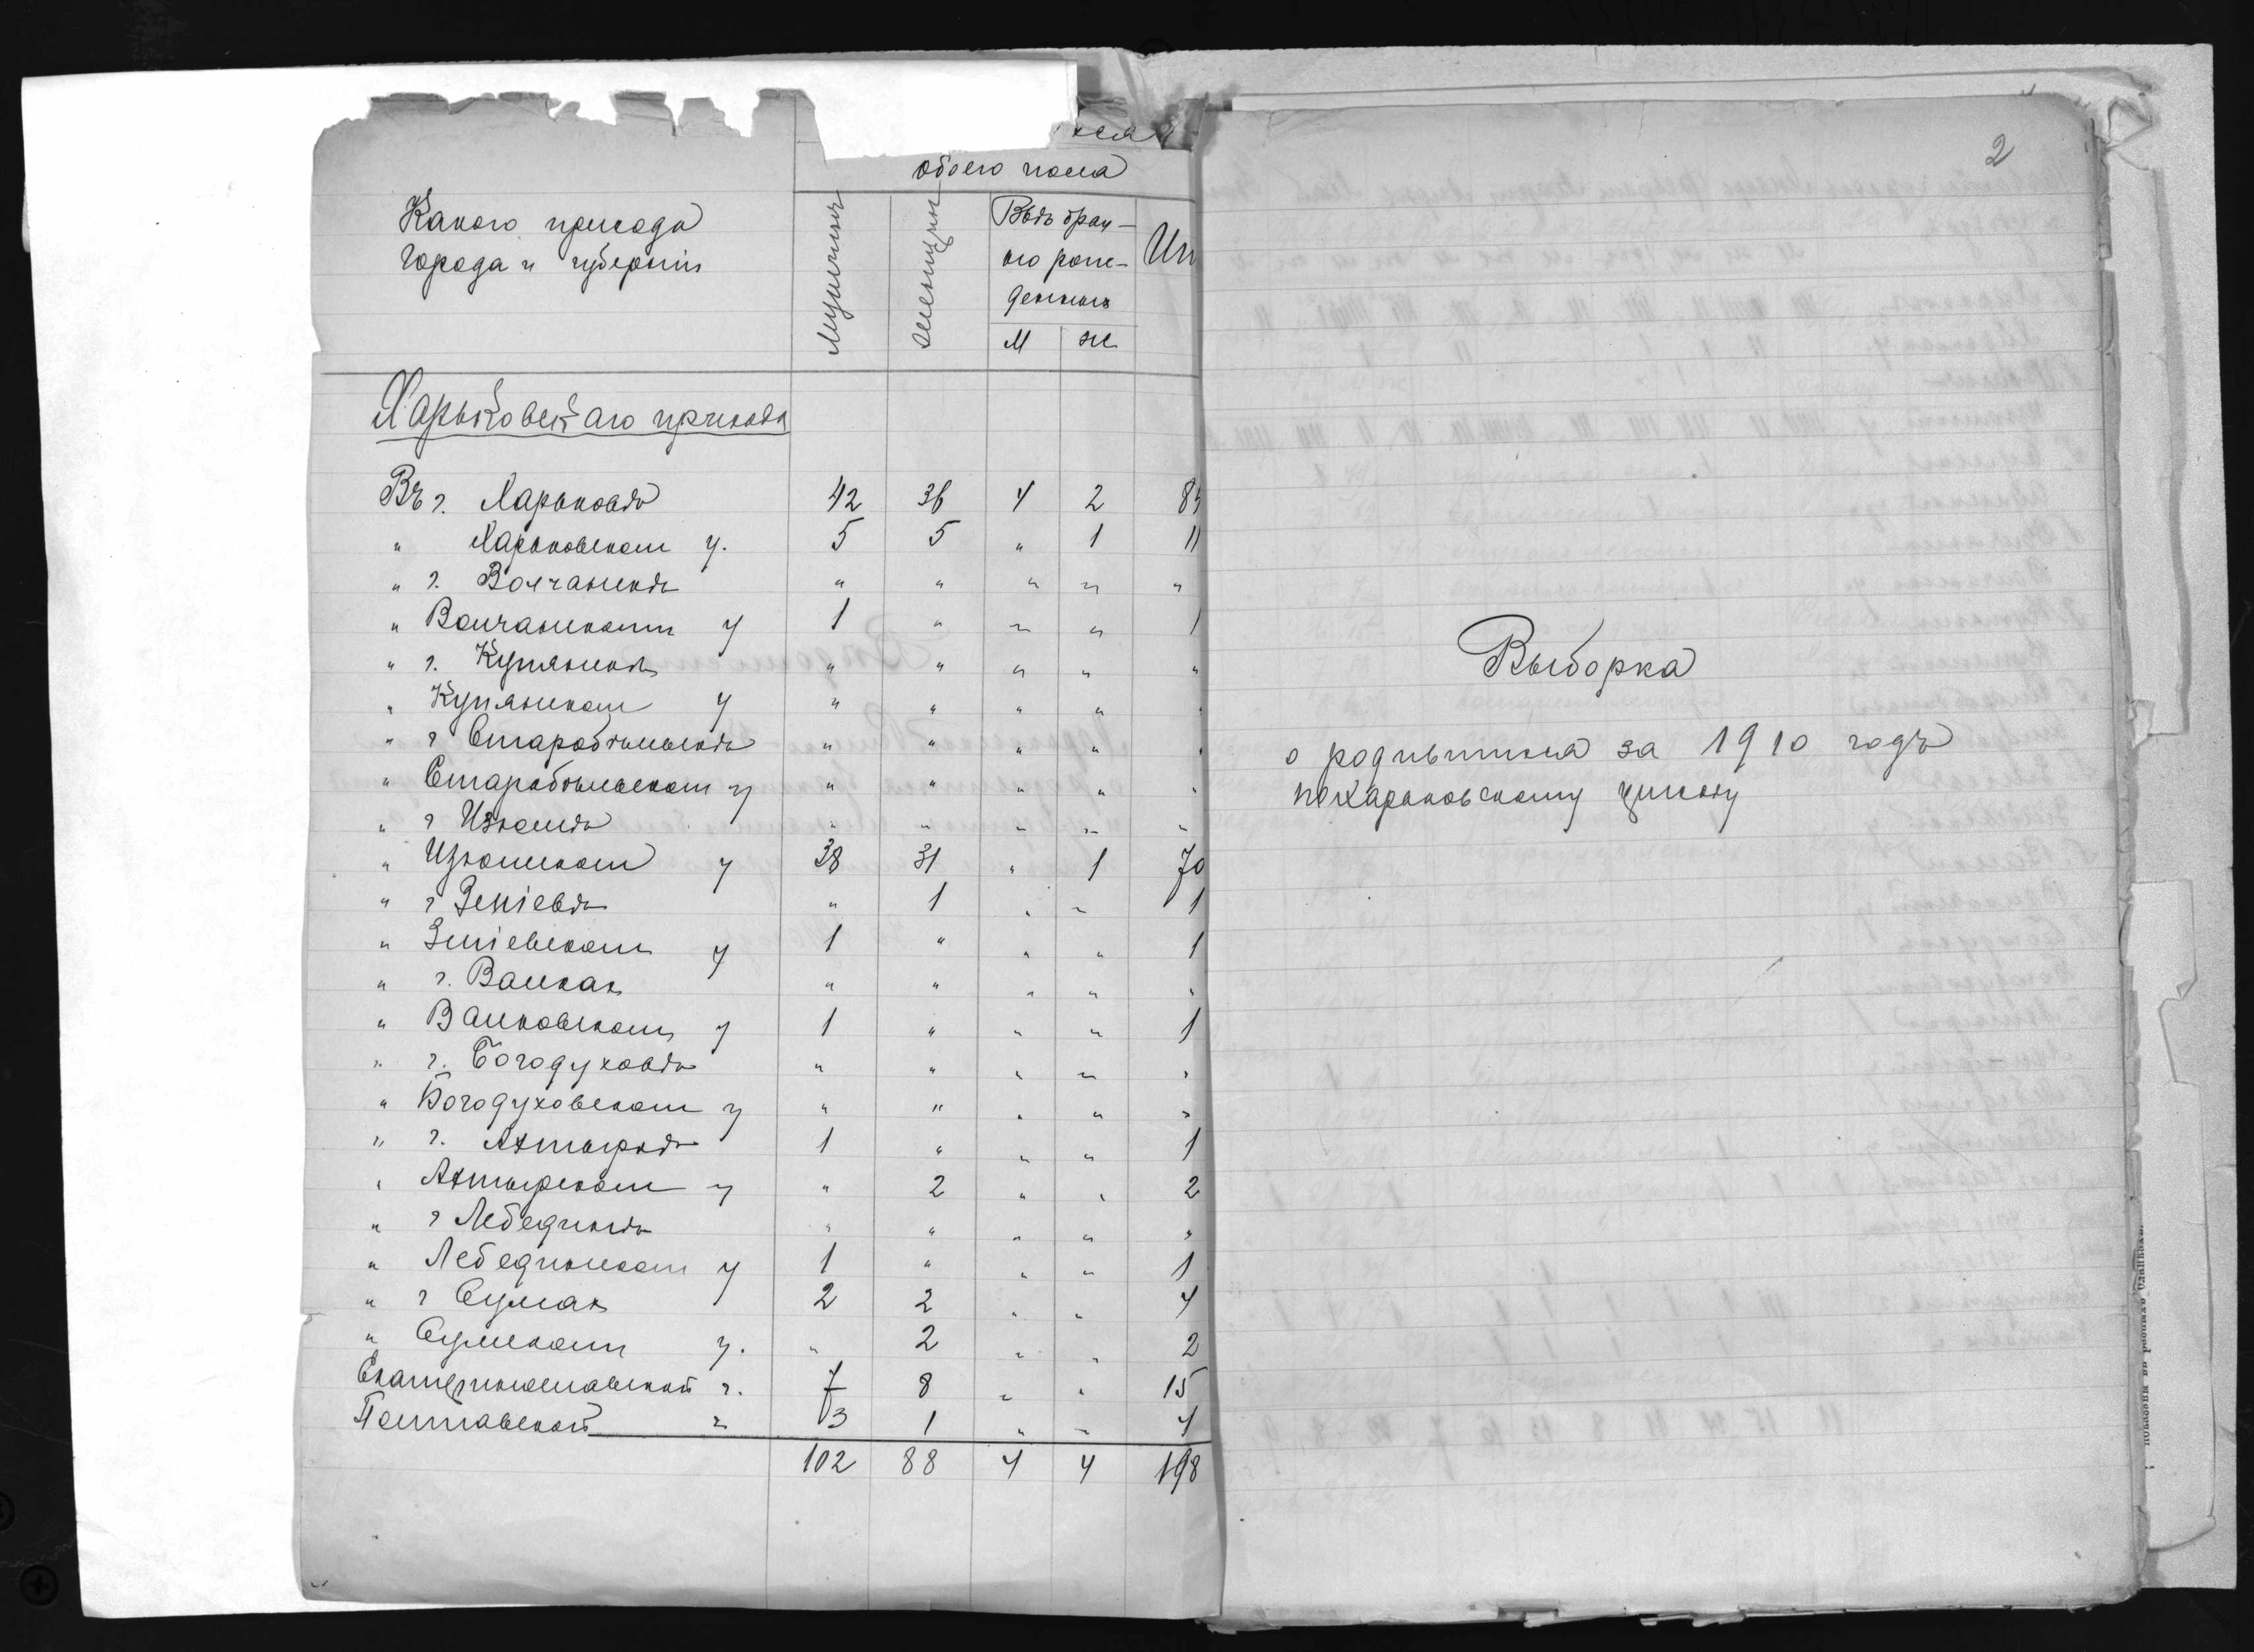 хся
обоего пола
Какого прихода
города и губернiи
Мущинъ
Женщинъ
Внѣ брач-
но рож-
денныхъ
М ж
Ит
Харьковскаго прихода
Въ г. Харьковѣ 42 36 4 2 84
" Харьковскомъ у. 5 5 " 1 11
" г. Волчанскѣ " " " " "
" Волчанскомъ у 1 " " " 1
" г. Купянскѣ " " " " "
" Купянскомъ у " " " " "
" г Старобѣльскѣ " " " " "
" Старобѣльскомъ у " " " " "
" г Изюмѣ " " " " "
" Изюмскомъ у 38 31 " 1 70
" г Змiевѣ " 1 " " 1
" Змiевскомъ у 1 " " " 1
" г. Валкахъ " " " " "
" Валковскомъ у 1 " " " 1
" г. Богодуховѣ " " " " "
" Богодуховскомъ у " " " " "
" г. Ахтыркѣ 1 " " " 1
" Ахтырскомъ у " 2 " " 2
" г Лебединѣ " " " " "
" Лебединскомъ у 1 " " " 1
" г Сумахъ 2 2 " " 4
" Сумскомъ у. " 2 " " 2
Екатеринославской г. 7 8 " " 15
Полтавской г 3 1 " " 4
102 88 4 4 198
2
Выборка
о родившихся за 1910 годъ
по Харьковскому